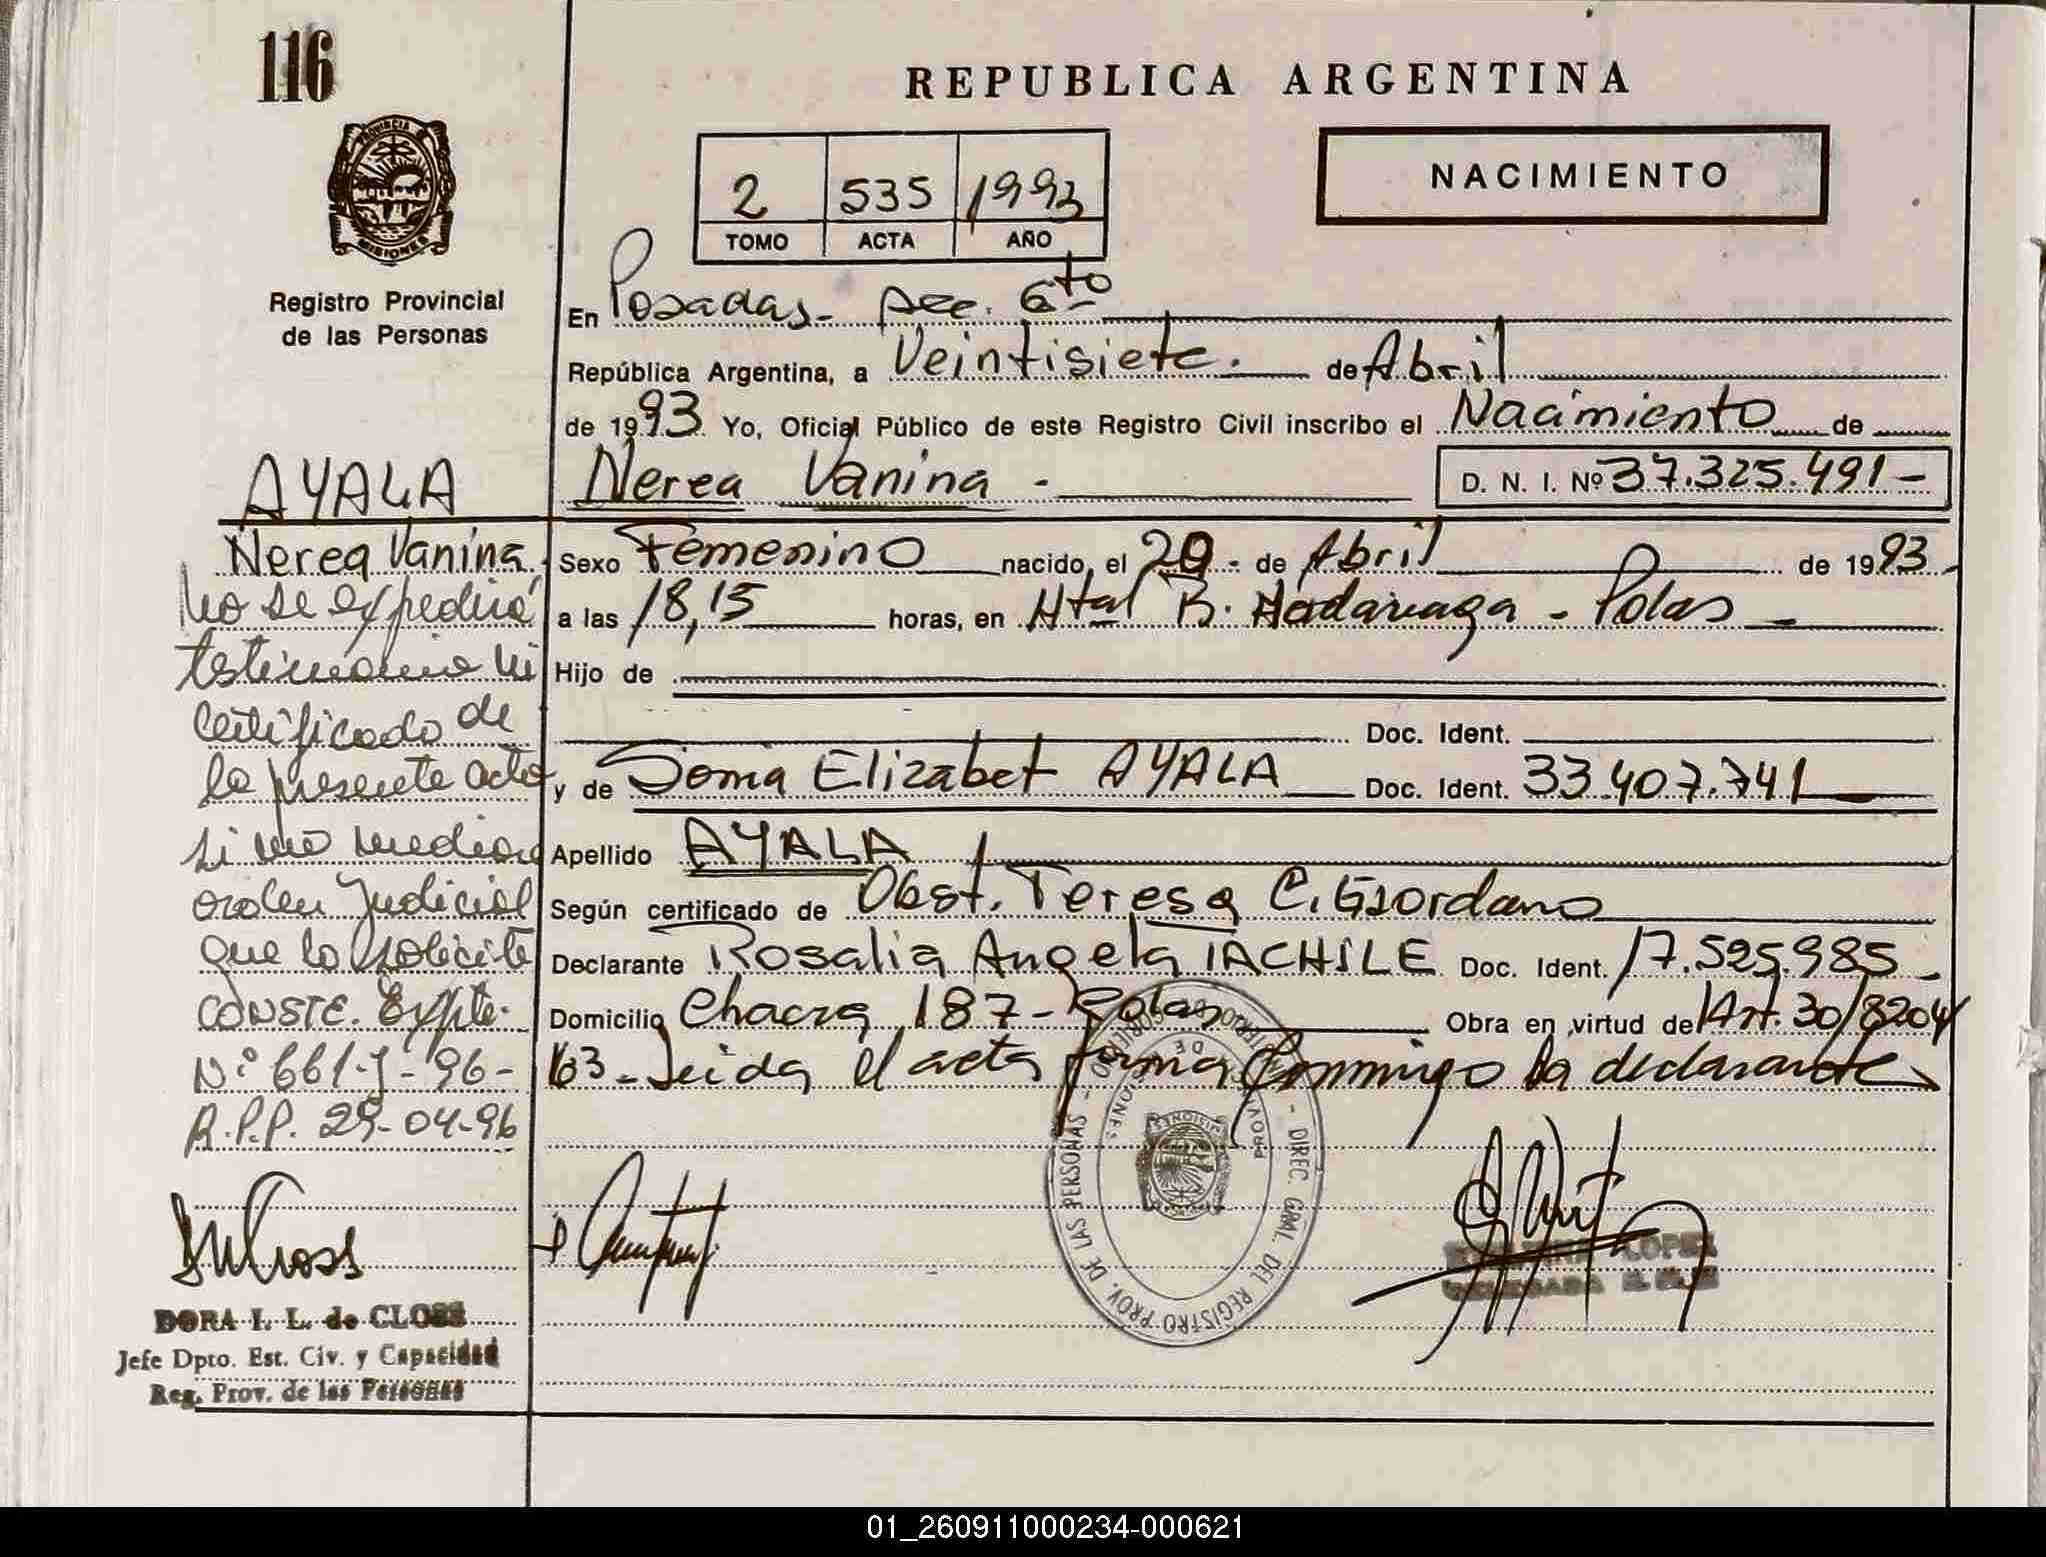 116
REPUBLICA ARGENTINA
PROVINCIA DE
MISIONES
Registro Provincial
de las Personas
2 535 1993
TOMO ACTA AÑO
NACIMIENTO
En Posadas - sec. 6to
República Argentina, a Veintisiete. de Abril
de 1993 Yo, Oficial Público de este Registro Civil inscribo el Nacimiento de
Nerea Vanina - D. N. I. Nº 37.325.491 -
Sexo Femenino nacido, el 20 - de Abril de 1993
a las 18,15 horas, en Htal R. Madariaga - Pdas -
Hijo de
Doc. Ident.
y de Sonia Elizabet AYALA Doc. Ident. 33.407.741
Apellido AYALA
Según certificado de Obst. Teresa C. Giordano
Declarante Rosalia Angela TACHILE Doc. Ident. 17.525.985 -
Domicilio Chacra 187 - Pdas Obra en virtud de Art. 30/8204/
63 - Leida el acta firma conmigo la declarante
AYALA
Nerea Vanina
No se expedirá
testimonio ni
certificado de
la presente acta
si no media
orden Judicial
que lo solicite
CONSTE. Expte.
Nº 661-J-96-
R.P.P. 29-04-96
DORA I. L. de CLOSS
Jefe Dpto. Est. Civ. y Capacidad
Reg. Prov. de las Personas
DIREC. GRAL. DEL REGISTRO PROV. DE LAS PERSONAS
PROV. DE MISIONES
LOPEZ
01_260911000234-000621